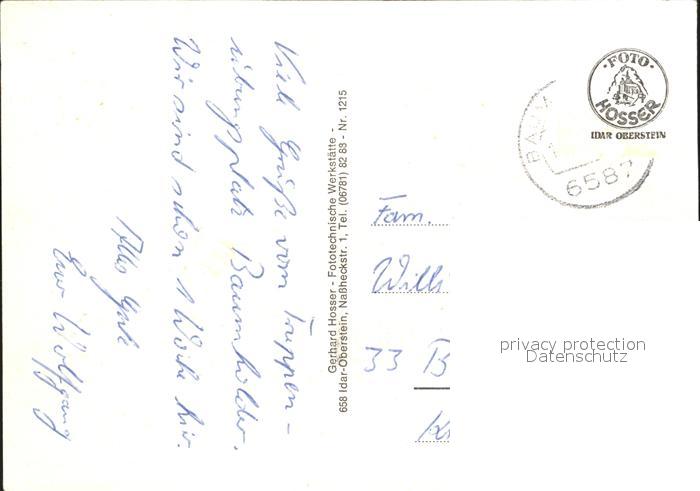 Viele Grüße vom Truppen-
übungsplatz Baumholder.
Wir sind schon 1 Woche hier.
Alles Gute
Euer Wolfgang
Gerhard Hosser - Fototechnische Werkstätte -
658 Idar-Oberstein, Naßheckstr. 1, Tel. (06781) 82 88 - Nr. 1215
· FOTO ·
HOSSER
IDAR OBERSTEIN
6587
Fam.
Willi
33 B
privacy protection
Datenschutz